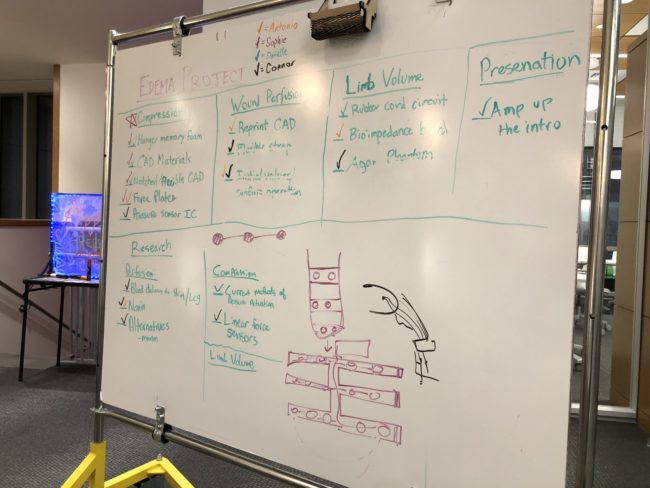 = Antonio
= Sophie
= Danielle
= Connor
EDEMA PROJECT
Compression
Hunger memory foam
CAD Materials
Notched/flexible CAD
Force Plates
Pressure sensor IC
Wound Perfusion
Reprint CAD
Flexible strap
Limb Volume
Rubber cord circuit
Bioimpedance
Agar Phantom
Presenation
Amp up
the intro
Research
Perfusion
Blood
to skin/Leg
Alternatives
Compression
Current methods of
Pressure Actuation
Linear force
sensors
Limb Volume